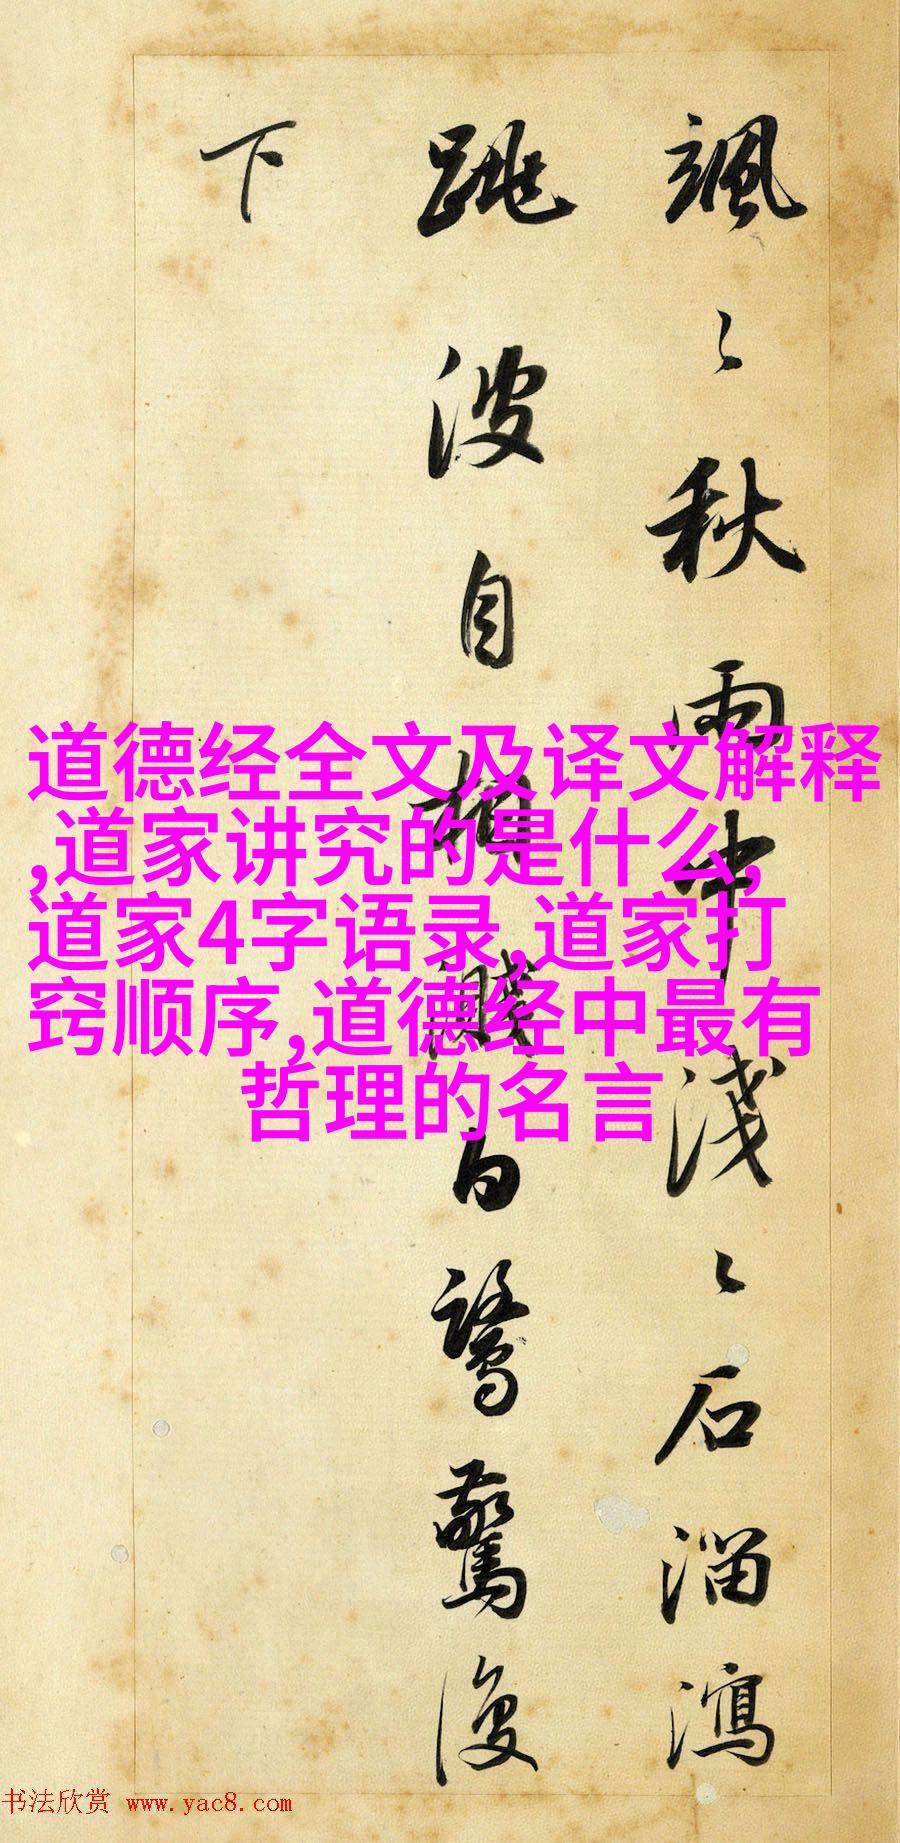 颯〻秋雨中淺〻石溜瀉
跳波自相濺白鷺驚復
下
道德经全文及译文解释
,道家讲究的是什么,
道家4字语录,道家打
窍顺序,道德经中最有
哲理的名言
书法欣赏 www.yac8.com